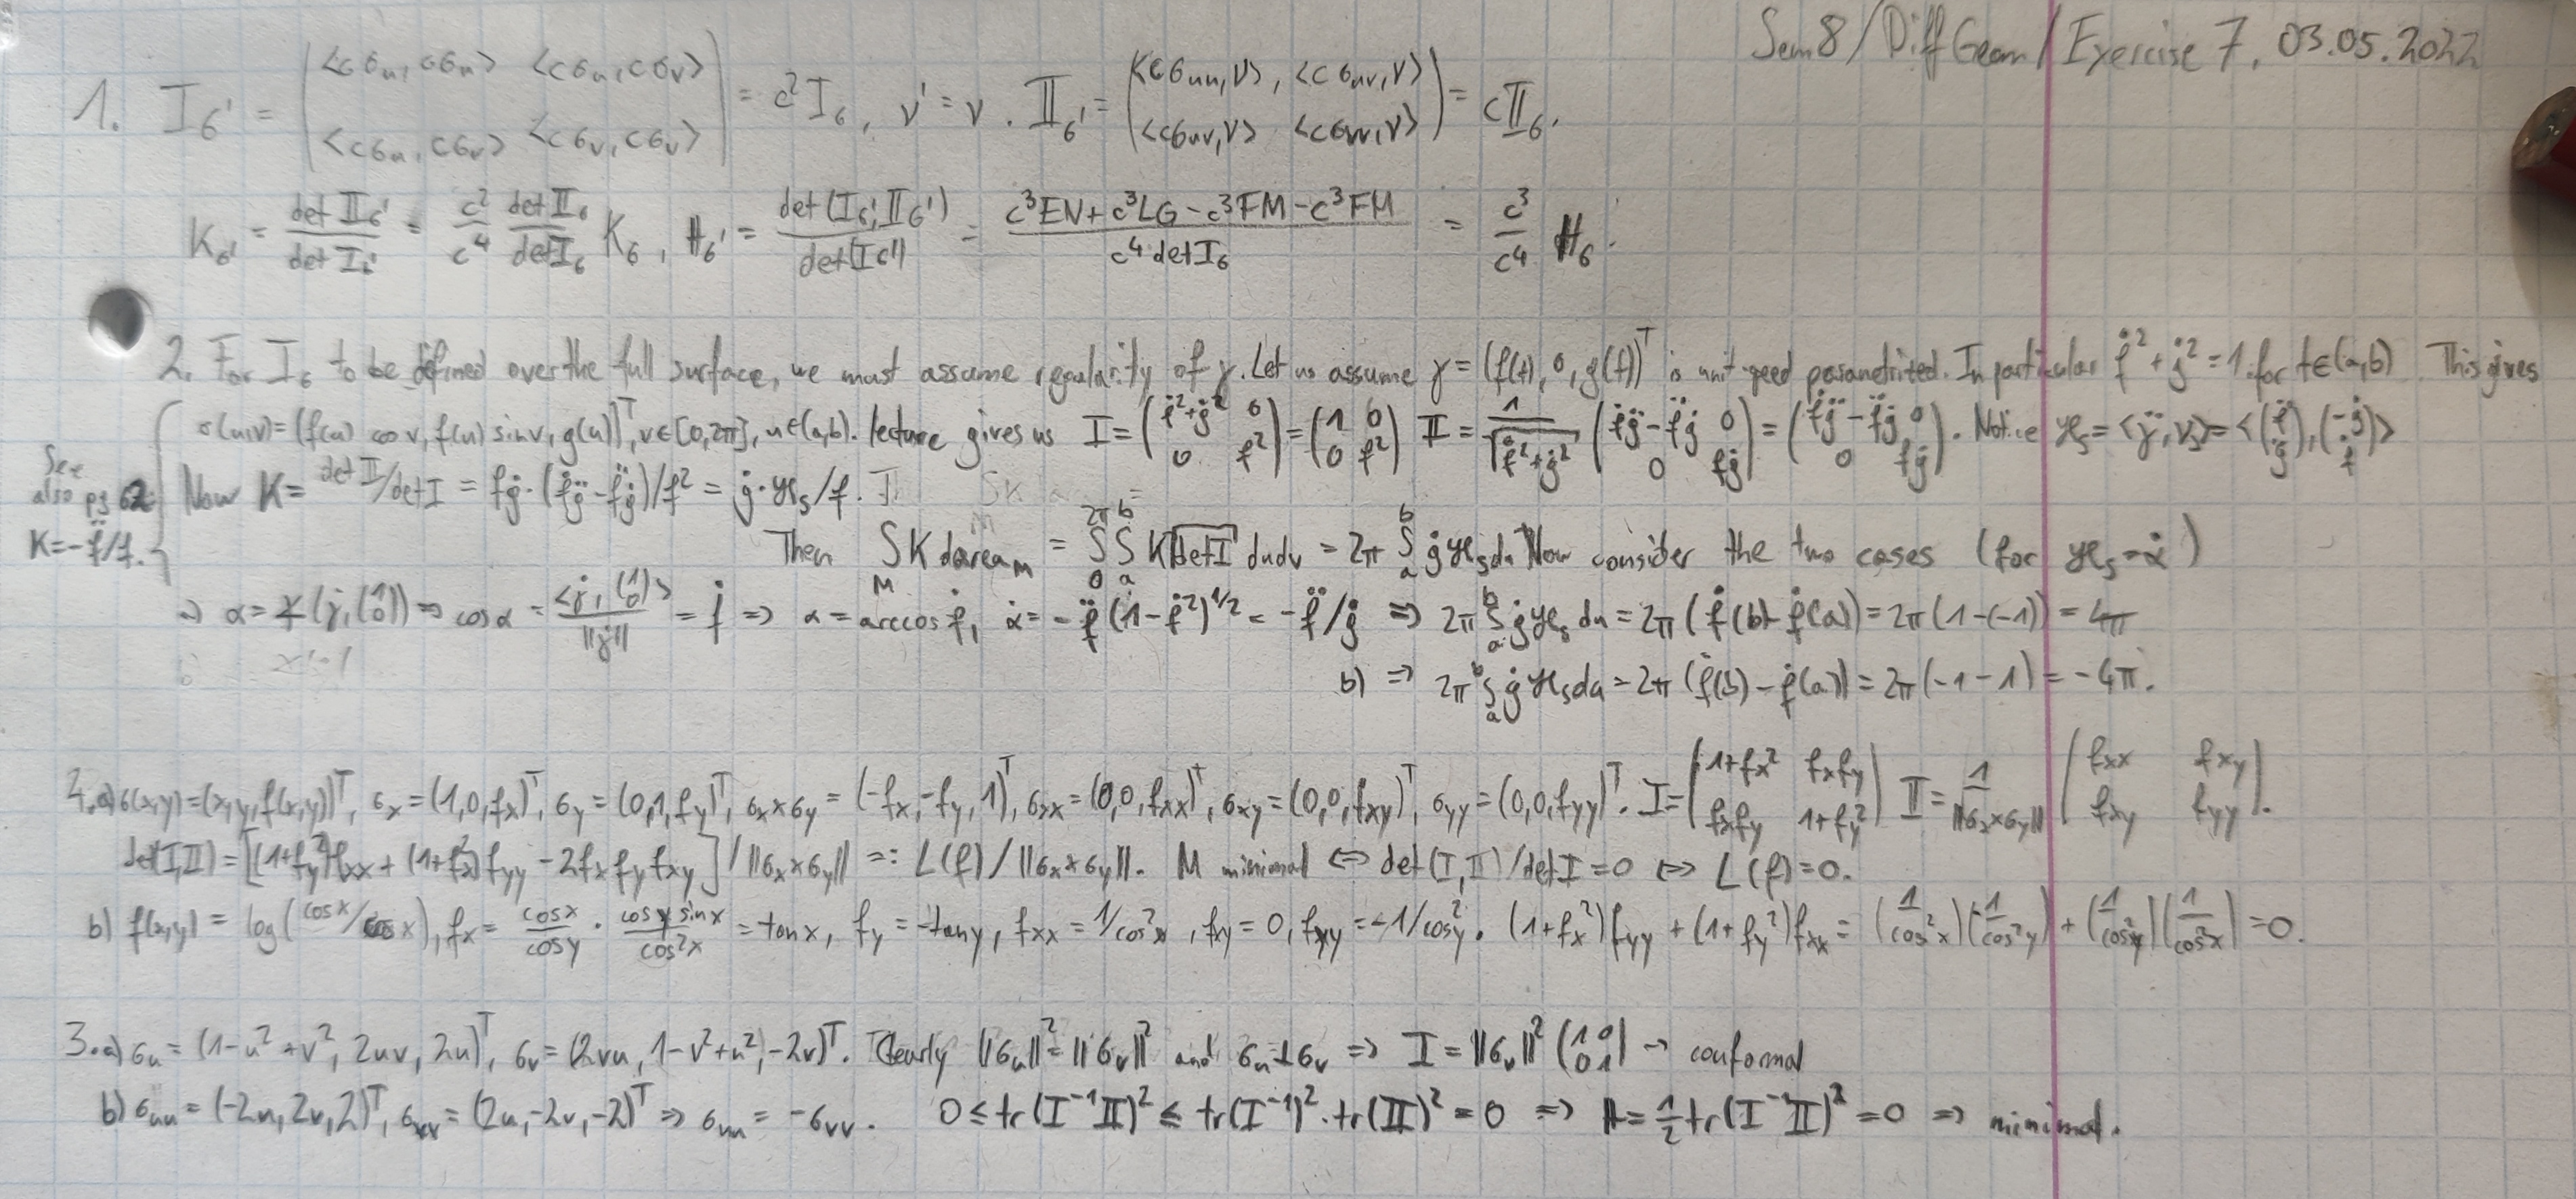 Sem 8/DiffGeom/Exercise 7, 03.05.2022
1. I_σ' = (<cσ_u, cσ_u> <cσ_u, cσ_v> / <cσ_u, cσ_v> <cσ_v, cσ_v>) = c² I_σ, ν' = ν. II_σ' = (<cσ_uu, ν>, <cσ_uv, ν> / <cσ_uv, ν> <cσ_vv, ν>) = c II_σ.
K_σ' = det II_σ' / det I_σ' = c²/c⁴ det II_σ / det I_σ K_σ, H_σ' = det(I_σ', II_σ') / det(I_σ') = (c³EN + c³LG - c³FM - c³FM) / (c⁴ det I_σ) = c³/c⁴ H_σ.
2. For I_σ to be defined over the full surface, we must assume regularity of γ. Let us assume γ = (f(t), 0, g(t))ᵀ is unit speed parametrited. In particular ḟ² + ġ² = 1 for t∈(a,b). This gives
σ(u,v) = (f(u) cos v, f(u) sin v, g(u))ᵀ, v∈[0,2π], u∈(a,b). lecture gives us I = (ḟ²+ġ² 0 / 0 f²) = (1 0 / 0 f²) II = 1/√(ḟ²+ġ²) (ḟg̈ - f̈ġ 0 / 0 fġ) = (ḟg̈ - f̈ġ 0 / 0 fġ). Notice ϰ_s = <γ̈, ν_s> = <(f̈ / g̈), (-ġ / ḟ)>
See also pg 62: K = -f̈/f.
Now K = det II/det I = fġ·(ḟg̈ - f̈ġ)/f² = ġ·ϰ_s/f.
Then ∫_M K darea_M = ∫_0^2π ∫_a^b K √(det I) du dv = 2π ∫_a^b ġϰ_s du Now consider the two cases (for ϰ_s = α̇)
a) α = ∡(γ̇, (1 / 0)) ⇒ cos α = <γ̇, (1 / 0)> / ||γ̇|| = ḟ ⇒ α = arccos ḟ, α̇ = -f̈ (1-ḟ²)^1/2 = -f̈/ġ ⇒ 2π ∫_a^b ġϰ_s du = 2π (ḟ(b) - ḟ(a)) = 2π (1-(-1)) = 4π
b) ⇒ 2π ∫_a^b ġϰ_s du = 2π (ḟ(b) - ḟ(a)) = 2π (-1-1) = -4π.
4. a) σ(x,y) = (x,y, f(x,y))ᵀ, σ_x = (1,0,f_x)ᵀ, σ_y = (0,1,f_y)ᵀ, σ_x×σ_y = (-f_x, -f_y, 1)ᵀ, σ_xx = (0,0,f_xx)ᵀ, σ_xy = (0,0,f_xy)ᵀ, σ_yy = (0,0,f_yy)ᵀ. I = (1+f_x² f_xf_y / f_xf_y 1+f_y²) II = 1/||σ_x×σ_y|| (f_xx f_xy / f_xy f_yy).
det(I,II) = [(1+f_y²)f_xx + (1+f_x²)f_yy - 2f_x f_y f_xy] / ||σ_x×σ_y|| =: L(f) / ||σ_x×σ_y||. M minimal ⇔ det(I,II)/det I = 0 ⇔ L(f) = 0.
b) f(x,y) = log(cos x/cos x), f_x = cos x/cos y · cos y sin x/cos²x = tan x, f_y = -tan y, f_xx = 1/cos²x, f_xy = 0, f_yy = -1/cos²y. (1+f_x²)f_yy + (1+f_y²)f_xx = (1/cos²x)(-1/cos²y) + (1/cos²y)(1/cos²x) = 0.
3. a) σ_u = (1-u²+v², 2uv, 2u)ᵀ, σ_v = (2vu, 1-v²+u², -2v)ᵀ. Clearly ||σ_u||² = ||σ_v||² and σ_u ⊥ σ_v ⇒ I = ||σ_v||² (1 0 / 0 1) → conformal
b) σ_uu = (-2u, 2v, 2)ᵀ, σ_vv = (2u, -2v, -2)ᵀ ⇒ σ_uu = -σ_vv. 0 ≤ tr(I⁻¹II)² ≤ tr(I⁻¹)²·tr(II)² = 0 ⇒ H = 1/2 tr(I⁻¹II)² = 0 ⇒ minimal.